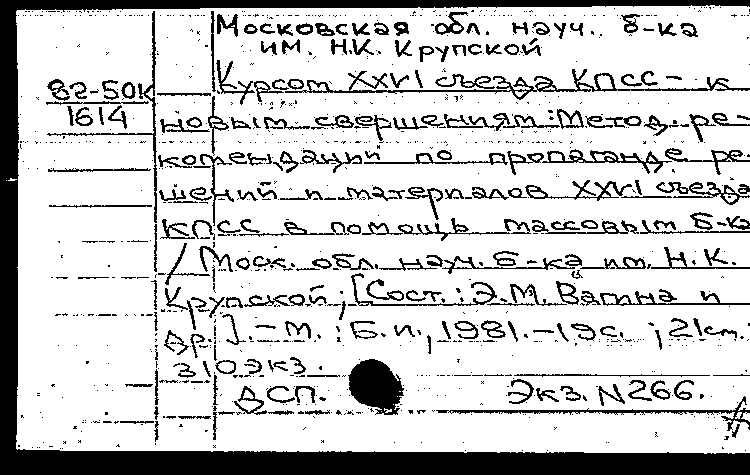 Московская обл. науч. б-ка
им. Н.К. Крупской
82-50К
1614
Курсом XXVI съезда КПСС - к
новым свершениям: Метод. ре-
комендации по пропаганде ре-
шений и материалов XXVI съезда
КПСС в помощь массовым б-ка
/ Моск. обл. науч. б-ка им. Н.К.
Крупской; [Сост.: Э.М. Вагина и
др.]. - М.: Б.и., 1981. - 19с. ; 21см.
310экз.
ДСП. Экз. N266.